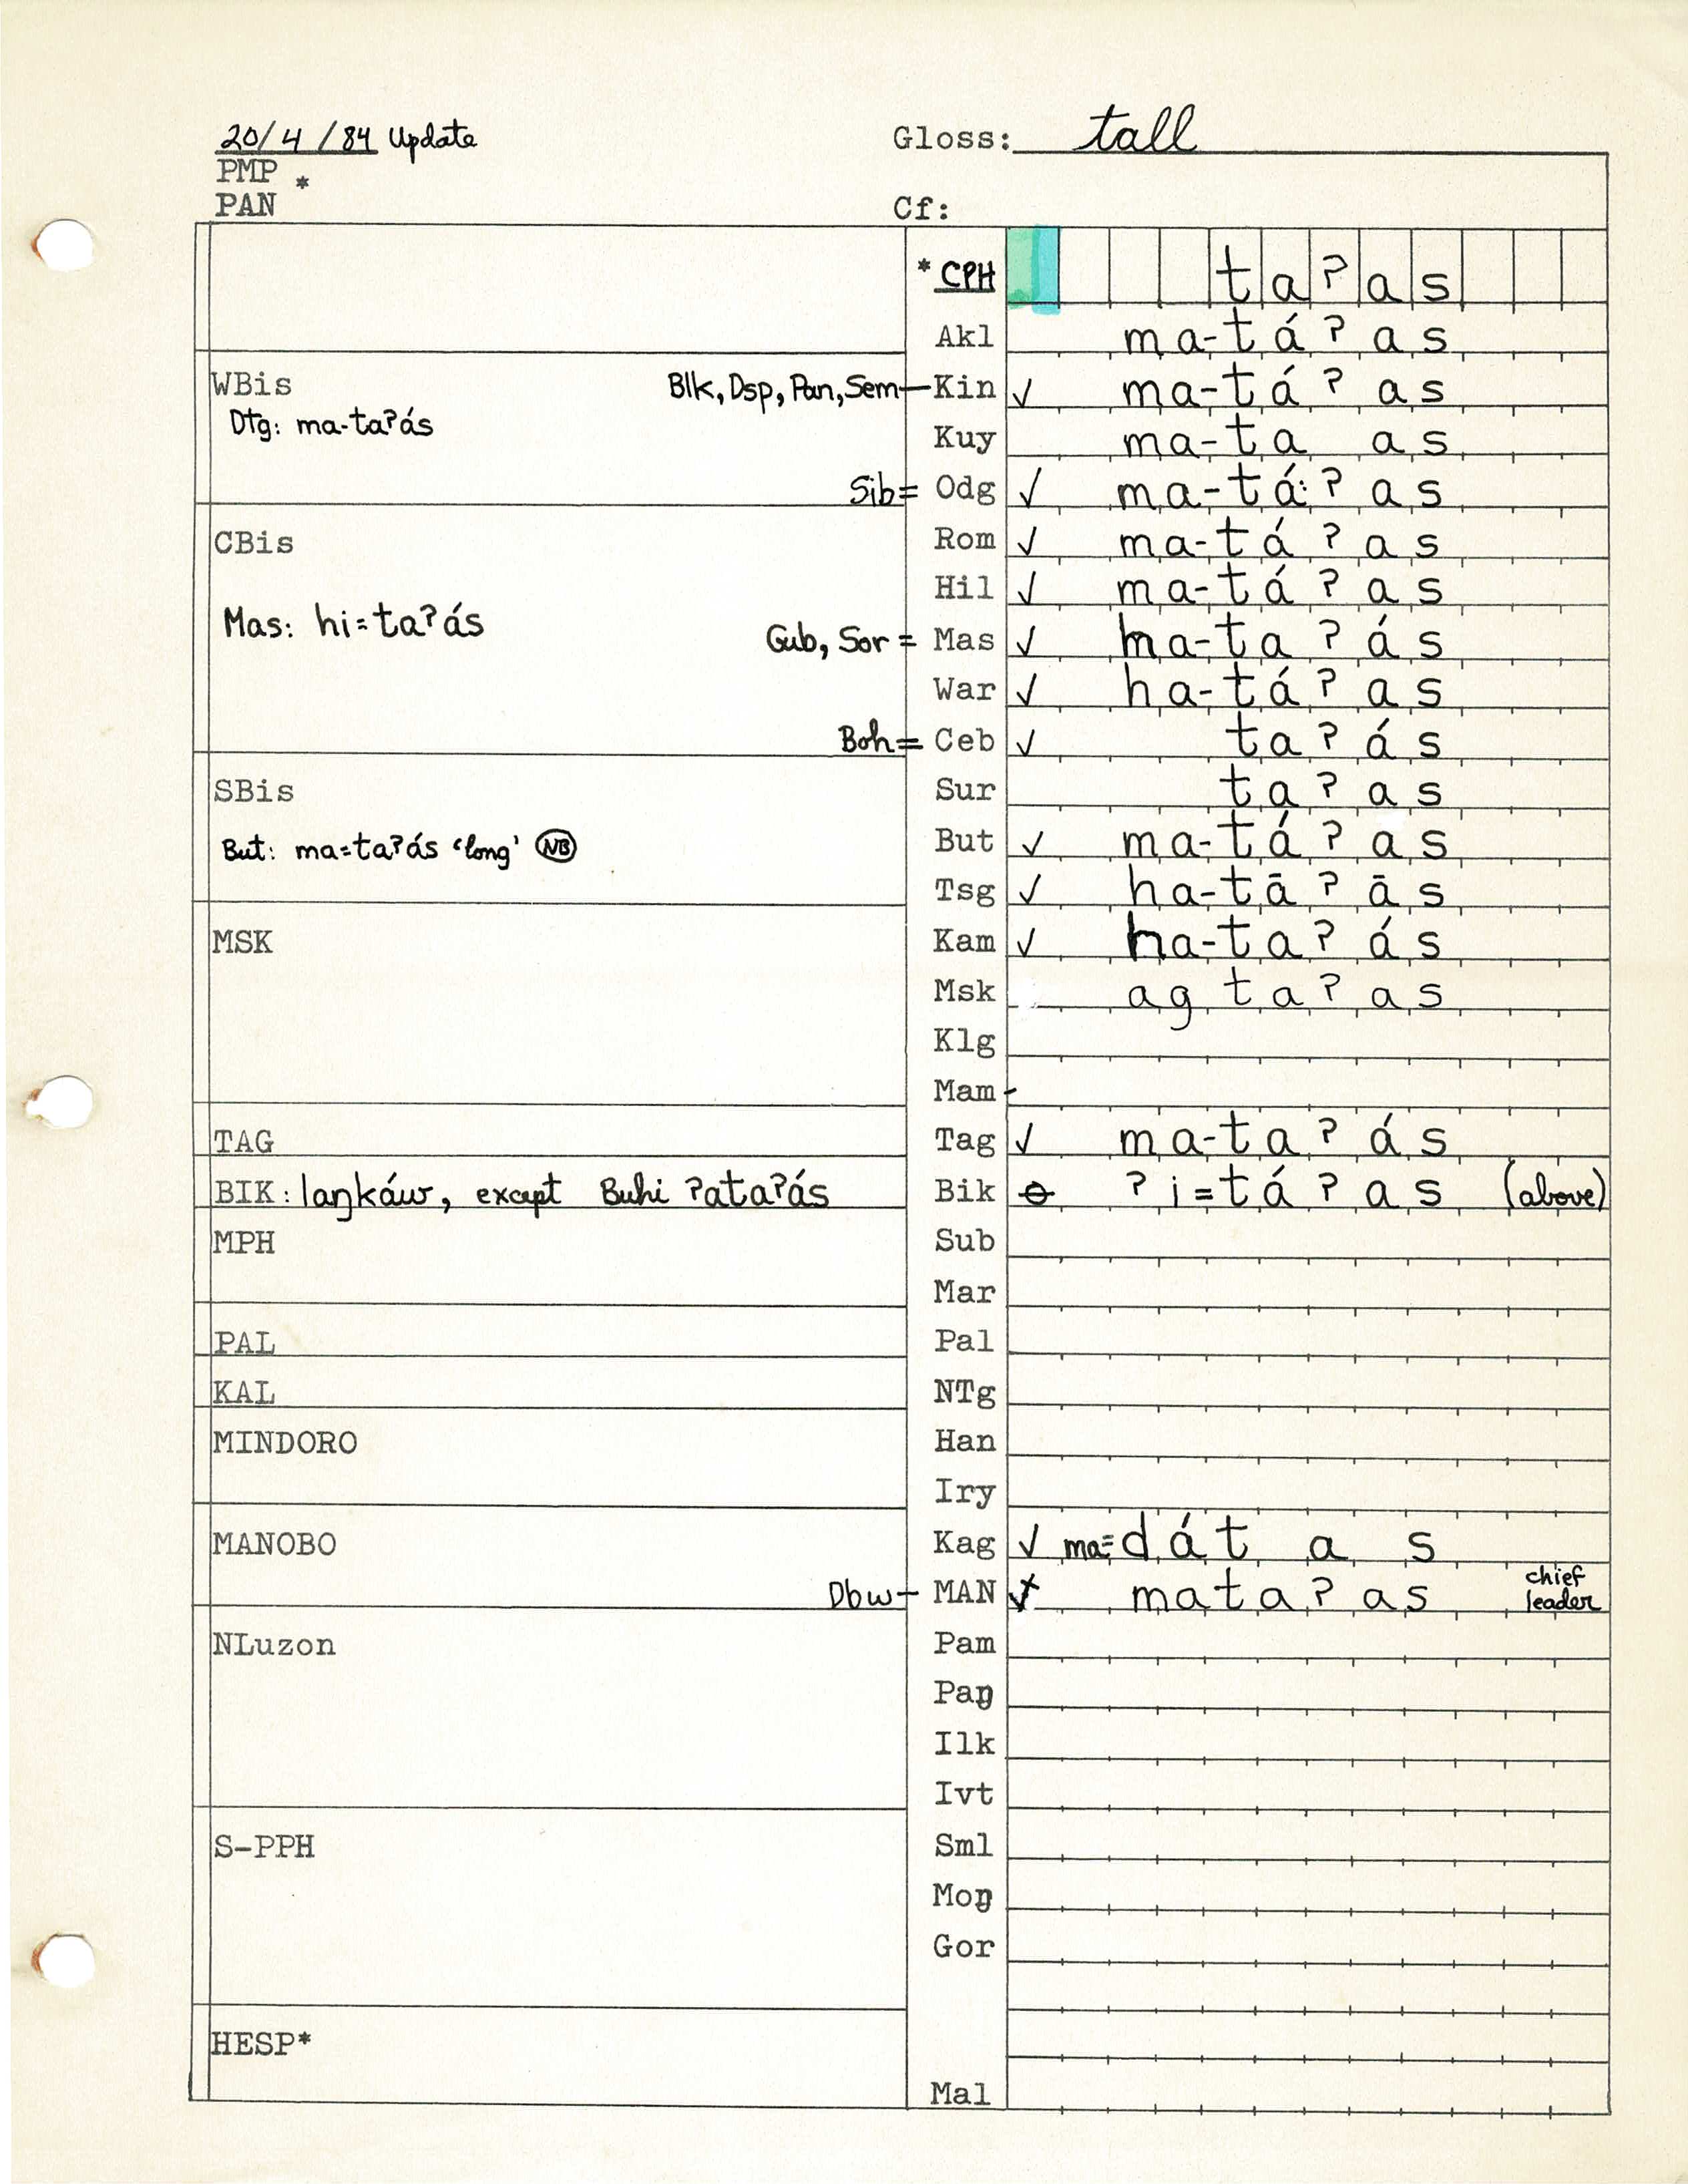 20/4/84 Update
Gloss: tall
PMP
*
PAN
Cf:
* CPH ta?as
Akl ma-tá?as
WBis
Blk, Dsp, Pan, Sem — Kin ✓ ma-tá?as
Dtg: ma-ta?ás
Kuy ma-ta as
Sib = Odg ✓ ma-tá:?as
CBis
Rom ✓ ma-tá?as
Hil ✓ ma-tá?as
Mas: hi=ta?ás
Gub, Sor = Mas ✓ ha-ta?ás
War ✓ ha-tá?as
Boh = Ceb ✓ ta?ás
SBis
Sur ta?as
But: ma=ta?ás 'long' NB
But ✓ ma-tá?as
Tsg ✓ ha-tā?ās
MSK
Kam ✓ ha-ta?ás
Msk ag ta?as
Klg
Mam -
TAG
Tag ✓ ma-ta?ás
BIK: laŋkáw, except Buhi ?ata?ás
Bik ?i=tá?as (above)
MPH
Sub
Mar
PAL
Pal
KAL
NTg
MINDORO
Han
Iry
MANOBO
Kag ✓ ma=dát as
Dbw — MAN mata?as chief leader
NLuzon
Pam
Paŋ
Ilk
Ivt
S-PPH
Sml
Moŋ
Gor
HESP*
Mal